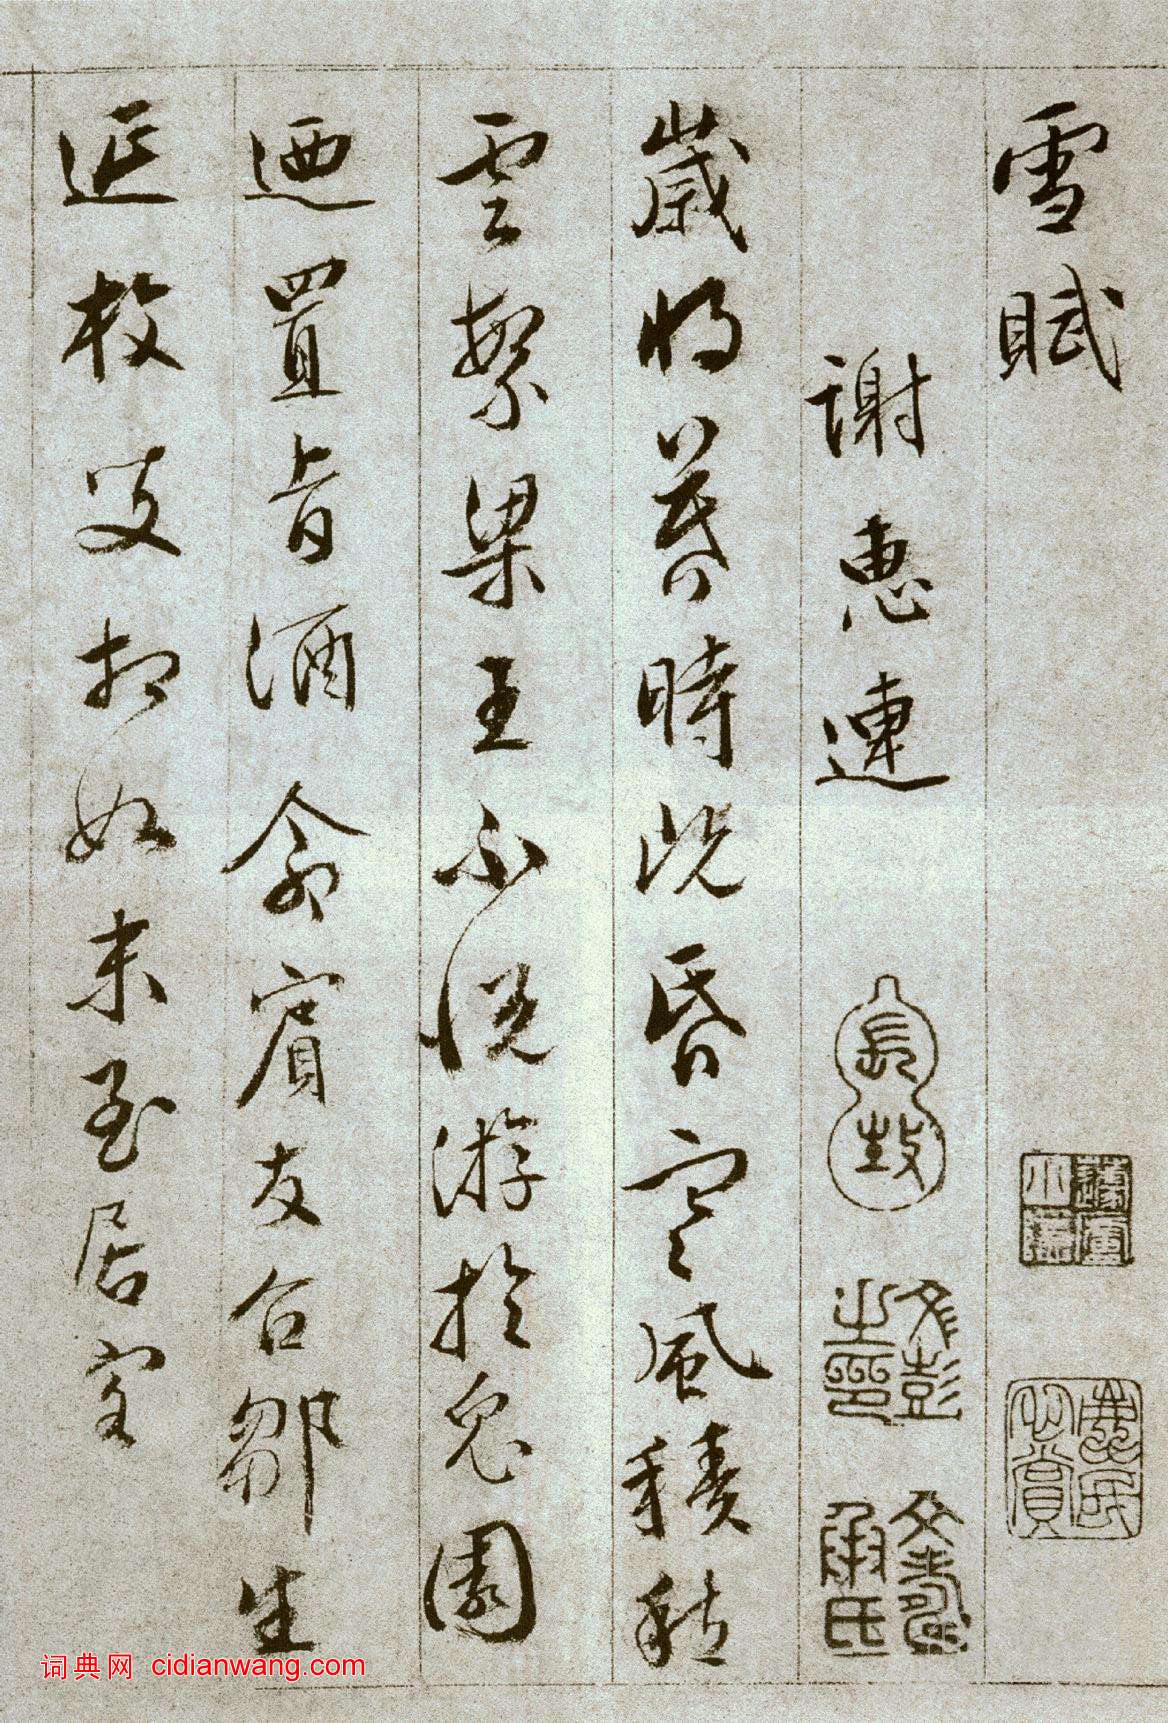 雪賦
謝惠連
歲將暮時既昏寒風積愁
雲繁梁王不悅游於兔園
迺置旨酒命賓友召鄒生
延枚叟相如末至居客
文彭之印
文壽承氏
词典网 cidianwang.com